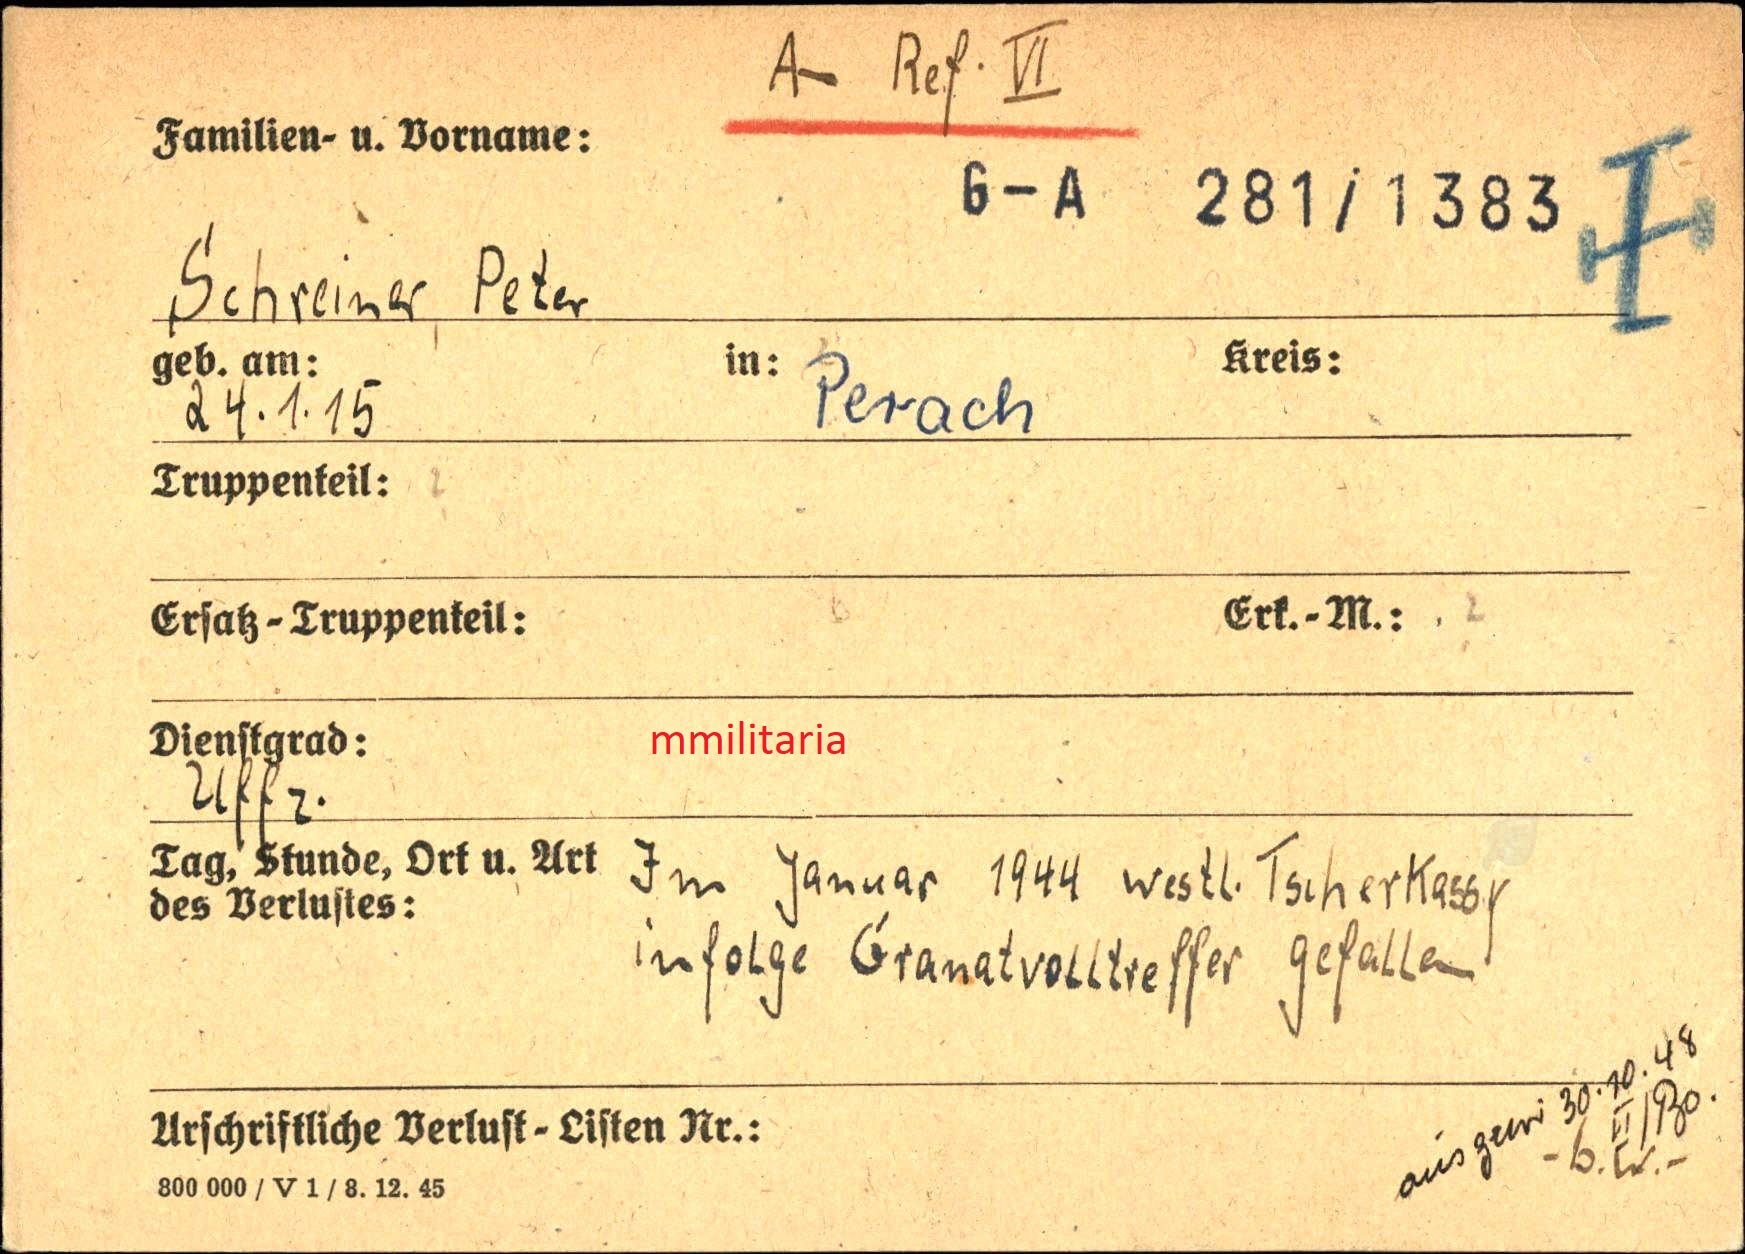 A Ref. VI
Familien- u. Vorname:
G-A 281/1383
Schreiner Peter
geb. am: in: Perach Kreis:
24.1.15
Truppenteil:
Ersatz-Truppenteil: Erk.-M.:
Dienstgrad: mmilitaria
Uffz.
Tag, Stunde, Ort u. Art Im Januar 1944 westl. Tscherkassy
des Verlustes:
infolge Granatvolltreffer gefallen
Urschriftliche Verlust-Listen Nr.:
30.10.48
800 000 / V 1 / 8. 12. 45